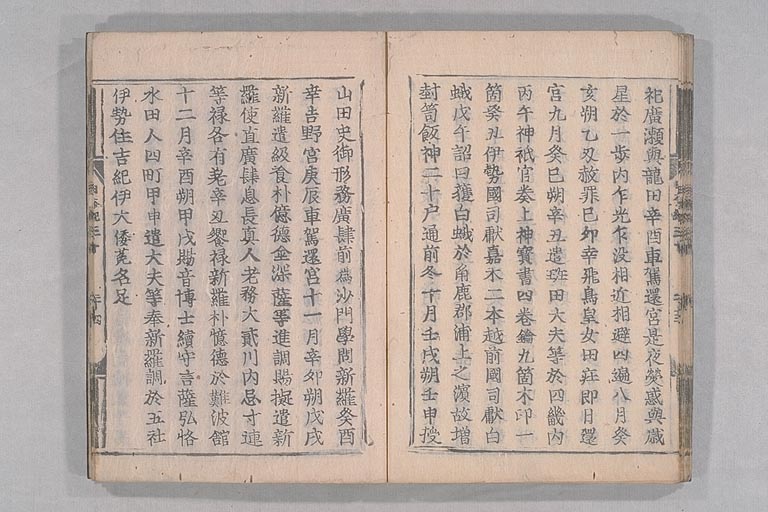 祀廣瀬與龍田辛酉車駕還宮是夜熒惑與歳
星於一歩內乍光乍没相近相避四遍八月癸
亥朔乙丑赦罪己卯幸飛鳥皇女田莊即日還
宮九月癸巳朔辛丑遣班田大夫等於四畿內
丙午神祇官奏上神寶書四卷鑰九箇木印一
箇癸丑伊勢國司獻嘉禾二本越前國司獻白
蛾戊午詔曰獲白蛾於角鹿郡浦上之濱故増
封笥飯神二十戸通前冬十月壬戌朔壬申授
山田史御形務廣肆前爲沙門學問新羅癸酉
幸吉野宮庚辰車駕還宮十一月辛卯朔戊戌
新羅遣級飡朴億德金深薩等進調賜擬遣新
羅使直廣肆息長真人老務大貳川內忌寸連
等禄各有差辛丑饗禄新羅朴憶德於難波館
十二月辛酉朔甲戌賜音博士續守言薩弘恪
水田人四町甲申遣大夫等奉新羅調於五社
伊勢住吉紀伊大倭菟名足